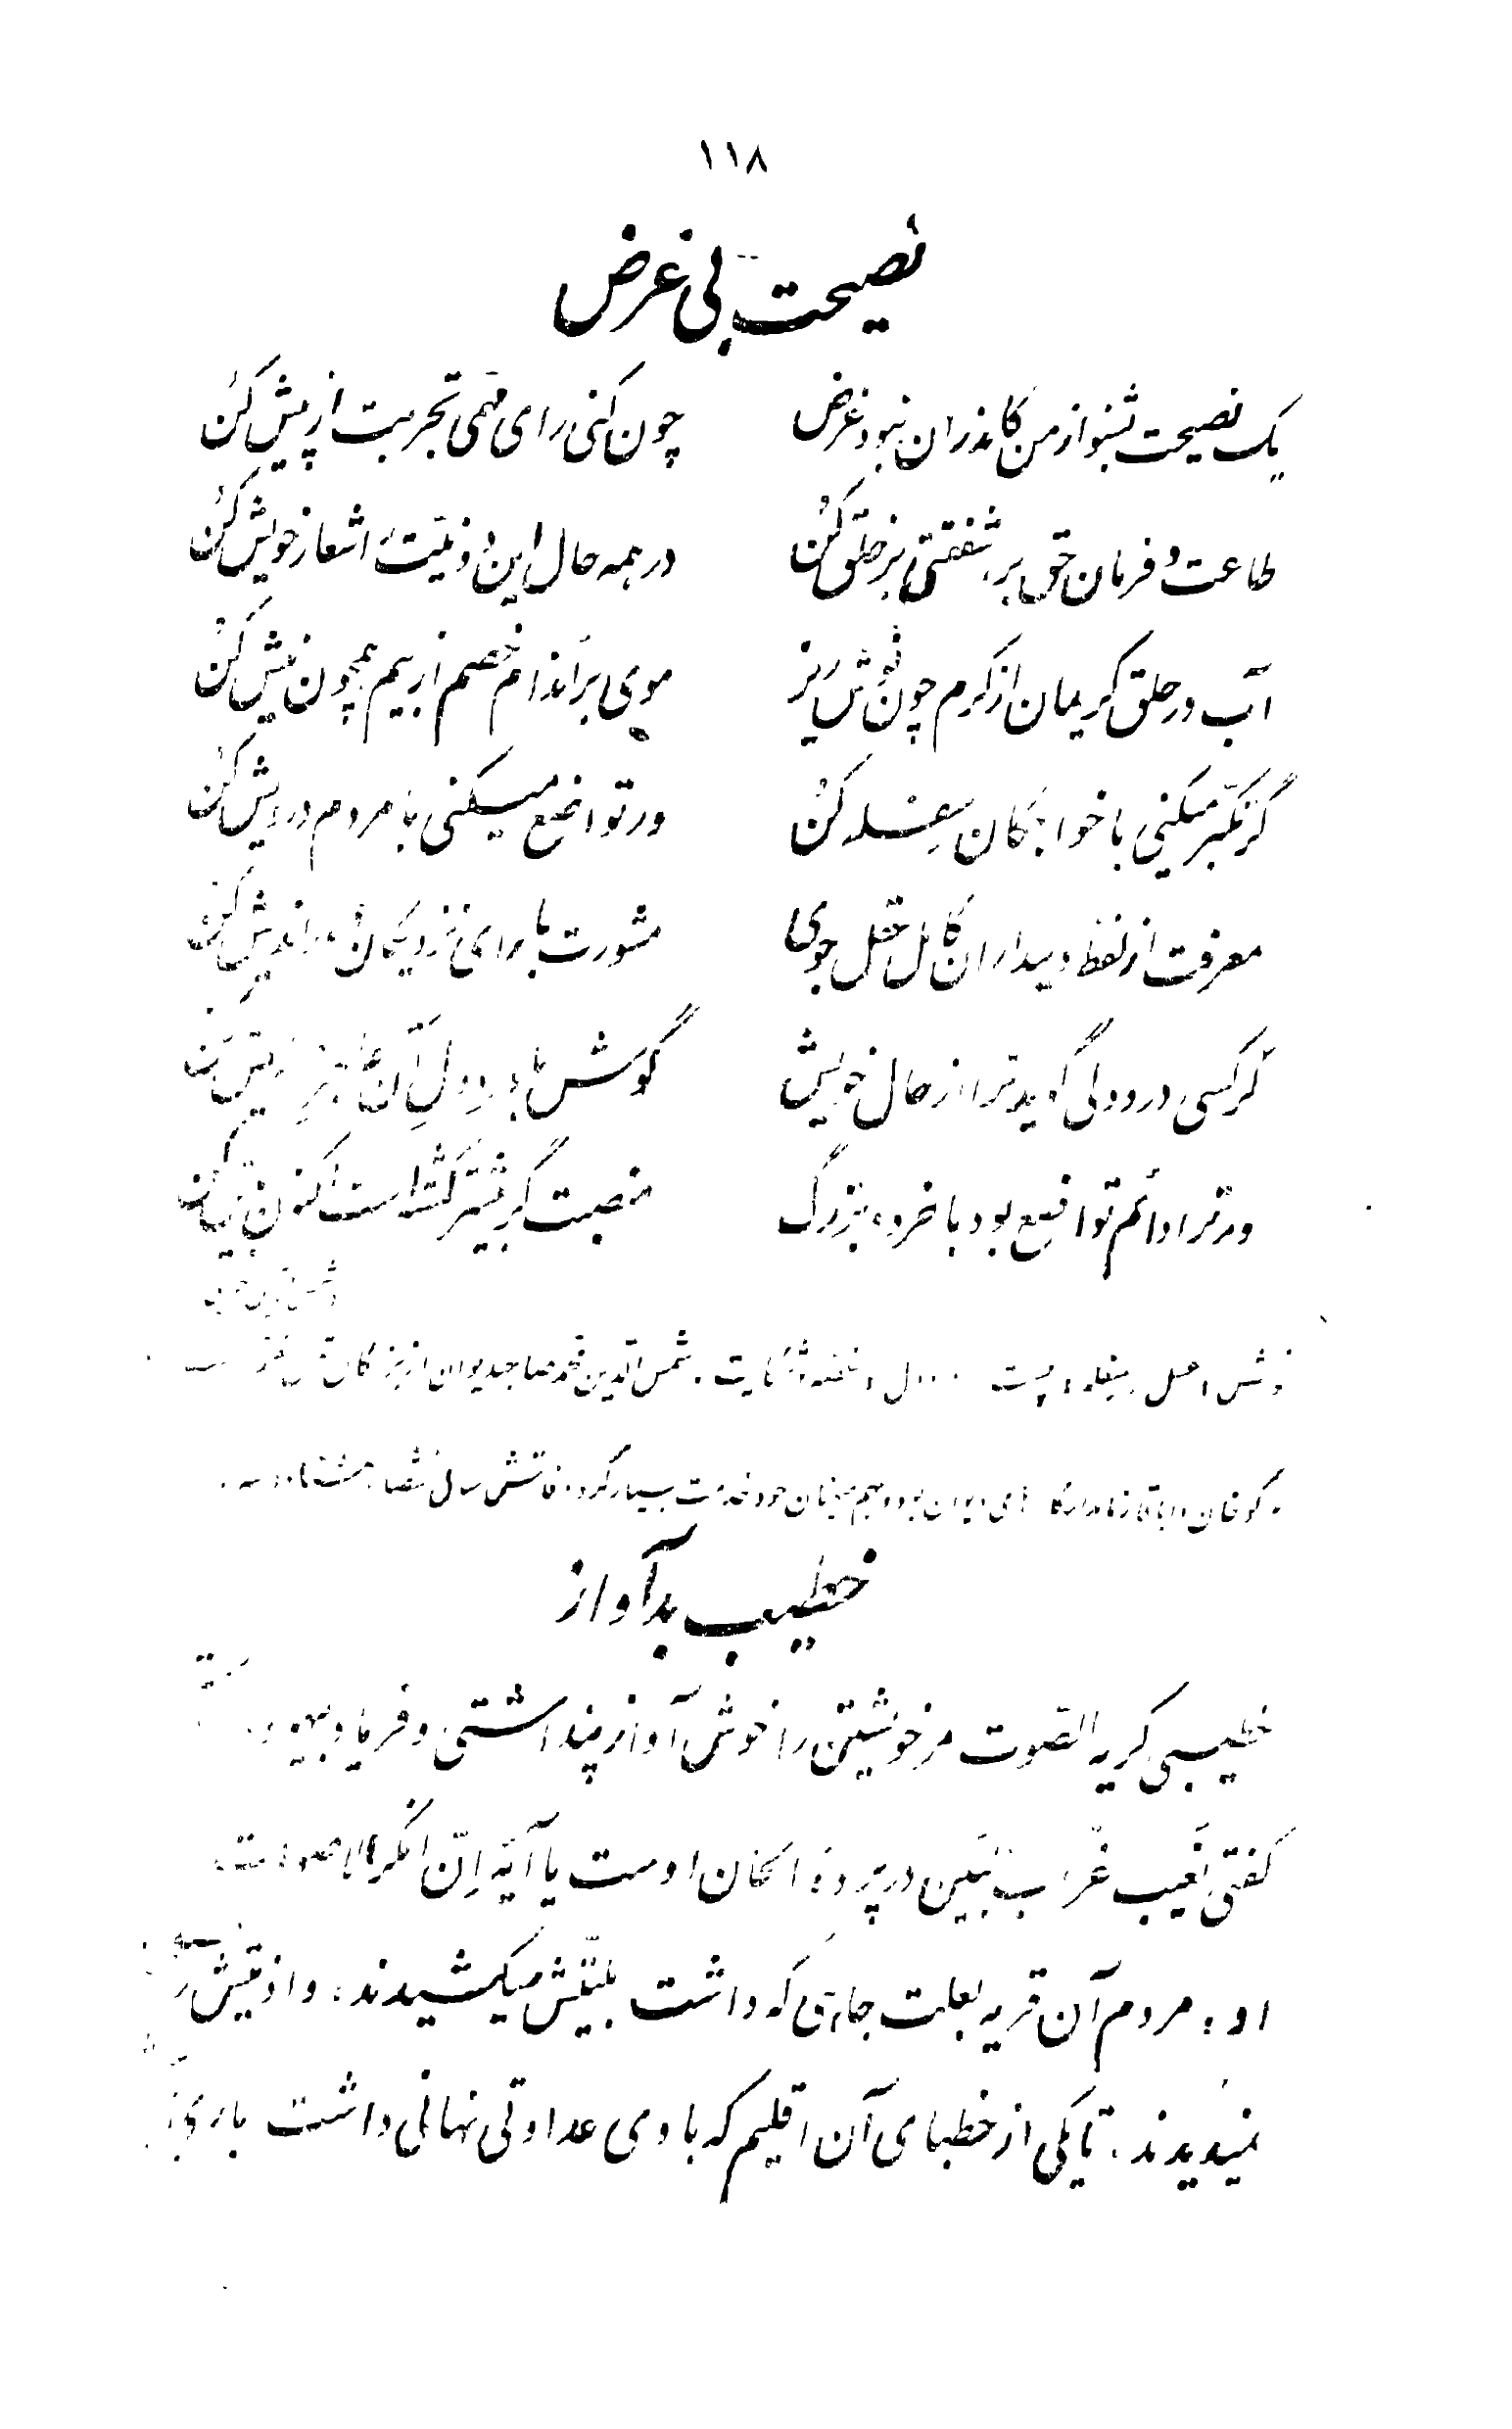 ۱۱۸
نصیحت بی غرض
یک نصیحت بشنو از من کاندران نبود غرض چون کنی رای مهمی تجربت از پیش کن
طاعت و فرمان حق بر، شفقتی بر خلق کن در همه حال این دو نیت را شعار خویش کن
آب در حلق کریمان از کرم چون نوش ریز موی بر اندام خصم از بیم همچون نیش کن
گر تکبر میکنی با خواجگان سفله کن ور تواضع میکنی با مردم درویش کن
معرفت از لفظ دینداران کامل عقل جوی مشورت با رای نزدیکان دوراندیش کن
گر کسی درد دلی گوید ترا از حال خویش گوش با درد دل آن عاجز
ور ترا دائم تواضع بود با خرد و بزرگ منصبت گر بیشتر گشتست اکنون بیش کن
شمس الدین محمد صاحبدیوان از بزرگان
خطیب بدآواز
خطیبی کریه الصوت مر خویشتن را خوش آواز پنداشتی و فریاد بیهوده
گفتی نعیب غراب بین در پردهٔ الحان اوست یا آیه اِنّ انکر الاصوات
او؛ مردم آن قریه بعلت جاهی که داشت بلیّتش میکشیدند؛ و اذیتش را
نمیدیدند. تا یکی از خطبای آن اقلیم که با وی عداوتی نهانی داشت باری